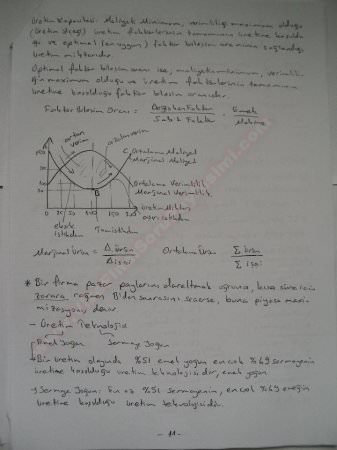 Üretim Kapasitesi: Maliyet Minimum, verimliliği maximum olduğu
(üretim ölçeği) üretim faktörlerinin tamamının üretime koşuldu
ğu ve optimal (en uygun) faktör bileşim oranının sağlandığı
üretim miktarıdır.
Optimal faktör bileşim oranı ise; maliyetin minimum, verimlili-
ğin maximum olduğu ve üretim faktörlerinin tamamının
üretime koşulduğu faktör bileşim oranıdır.
Faktör Bileşim Oranı = Değişken Faktör / Sabit Faktör = Emek / Makine
artan verim
azalan verim
C Ortalama Maliyet
Marjinal Maliyet
B
Ortalama Verimlilik
Marjinal Verimlilik
0 25 50 100
Üretim Miktarı
eksik istihdam
Tam istihdam
aşırı istihdam
Marjinal Ürün = Δ Ürün / Δ işçi Ortalama Ürün Σ Ürün / Σ işçi
* Bir firma pazar paylarını daraltmak uğruna, kısa süre için
zarara rağmen B'den sonrasını seçerse, buna piyasa maxi-
mizasyonu denir
- Üretim Teknolojisi
Emek Yoğun Sermaye Yoğun
* Bir üretim olayında %51 emek yoğun en çok %49 sermayenin
üretime koşulduğu üretim teknolojisidir, emek yoğun.
Sermaye Yoğun: En az %51 sermayenin, en çok %49 emeğin
üretime koşulduğu üretim teknolojisidir.
- 11 -